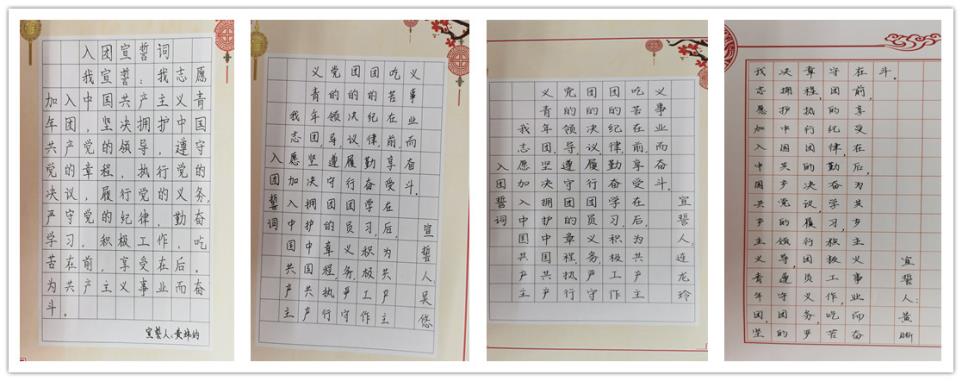 入团宣誓词
我宣誓：我志愿
加入中国共产主义青
年团，坚决拥护中国
共产党的领导，遵守
党的章程，执行党的
决议，履行党的义务，
严守党的纪律，勤奋
学习，积极工作，吃
苦在前，享受在后，
为共产主义事业而奋
斗。
宣誓人：黄
入团誓词
我志愿加入中国共产主
义青年团，坚决拥护中国共产
党的领导，遵守团的章程，执行
团的决议，履行团员义务，严守
团的纪律，勤奋学习，积极工作，
吃苦在前，享受在后，为共产主
义事业而奋斗。
宣誓人：吴悠
入团誓词
我志愿加入中国共产主
义青年团，坚决拥护中国共产
党的领导，遵守团的章程，执行
团的决议，履行团员义务，严守
团的纪律，勤奋学习，积极工作，
吃苦在前，享受在后，为共产主
义事业而奋斗。
宣誓人：连龙玲
我志愿加入中国共产主义青年团，坚
决拥护中国共产党的领导，遵守团的
章程，执行团的决议，履行团员义务，严
守团的纪律，勤奋学习，积极工作，吃苦
在前，享受在后，为共产主义事业而奋
斗。
宣誓人：黄晰